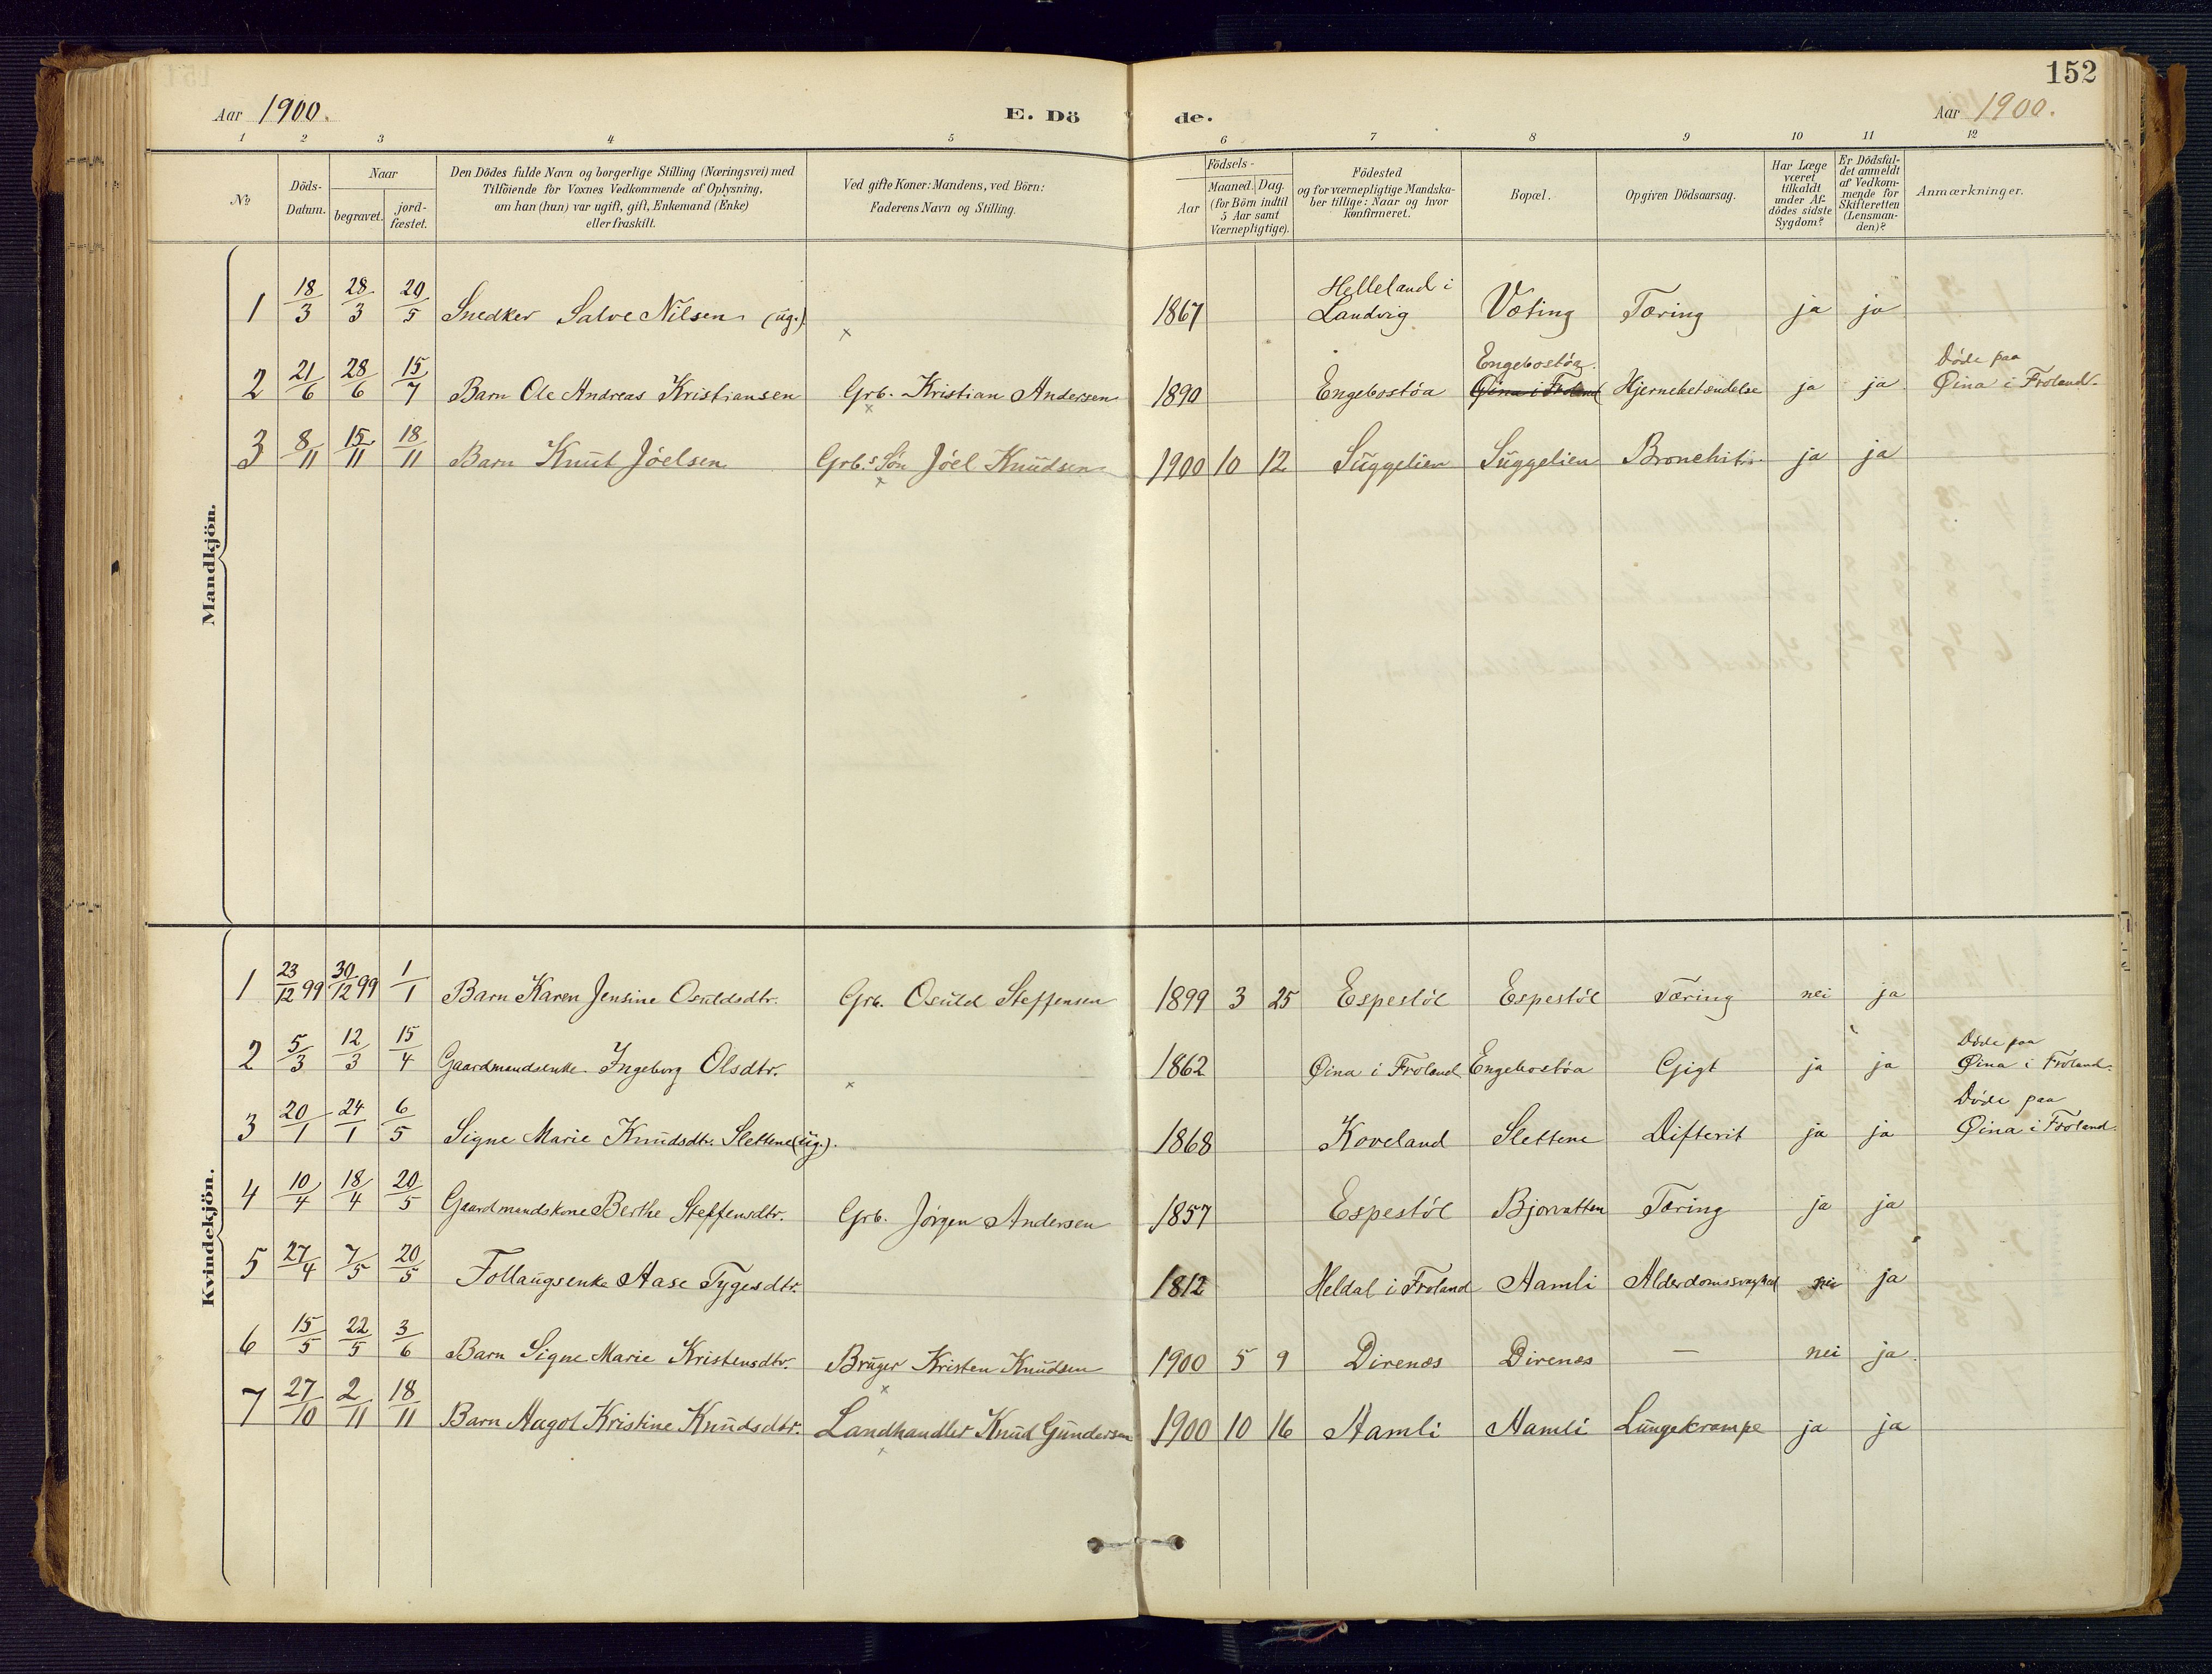 152
Aar 1900.
E. Dö
de.
Aar 1900.
1 2 3 4 5 6 7 8 9 10 11 12
№
Döds-Datum.
Naar
begravet.
jord-fæstet.
Den Dödes fulde Navn og borgerlige Stilling (Næringsvei) med
Tilföiende for Voxnes Vedkommende af Oplysning,
om han (hun) var ugift, gift, Enkemand (Enke)
eller fraskilt.
Ved gifte Koner: Mandens, ved Börn:
Faderens Navn og Stilling.
Födsels-
Aar
Maaned. Dag.
(for Börn indtil
5 Aar samt
Værnepligtige).
Födested
og for værnepligtige Mandska-
ber tillige: Naar og hvor
konfirmeret.
Bopæl.
Opgiven Dödsaarsag.
Har Læge
været
tilkaldt
under Af-
dödes sidste
Sygdom?
Er Dödsfal-
det anmeldt
af Vedkom-
mende for
Skifteretten
(Lensman-
den)?
Anmærkninger.
Mandkjön.
1 18/3 28/3 20/5 Snedker Salve Nilsen (ug.) x 1867 Helleland i Landvig Væting Tæring ja ja
2 21/6 28/6 15/7 Barn Ole Andreas Kristiansen Grb. Kristian Andersen x 1890 Engebostøa Engebostøa. Øina i Froland Hjernebetændelse ja ja Døde paa Øina i Froland.
3 8/11 15/11 18/11 Barn Knut Jóelsen Grb.s Søn Jóel Knudsen x 1900 10 12 Suggelien Suggelien Bronchitis ja ja
Kvindekjön.
1 23/12 99 30/12 99 1/1 Barn Karen Jensine Osuldsdtr. Grb. Osuld Steffensen 1899 3 25 Espestøl Espestøl Tæring nei ja
2 5/3 12/3 15/4 Gaardmandsenke Ingeborg Olsdtr. x 1862 Øina i Froland Engebostøa Gigt ja ja Døde paa Øina i Froland.
3 20/1 24/1 6/5 Signe Marie Knudsdtr. Slettene (ug.). 1868 Koveland Slettene Difterit ja ja Døde paa Øina i Froland.
4 10/4 18/4 20/5 Gaardmandskone Berthe Steffensdtr. Grb. Jörgen Andersen 1857 Espestøl Bjorvatten Tæring ja ja
5 27/4 7/5 20/5 Follaugsenke Aase Tygesdtr. 1812 Heldal i Froland Aamli Alderdomssvaghed nei ja
6 15/5 22/5 3/6 Barn Signe Marie Kristensdtr. Bruger Kristen Knudsen x 1900 5 9 Direnæs Direnæs — nei ja.
7 27/10 2/11 18/11 Barn Aagot Kristine Knudsdtr. Landhandler Knud Gundersen x 1900 10 16 Aamli Aamli Lungekrampe ja ja